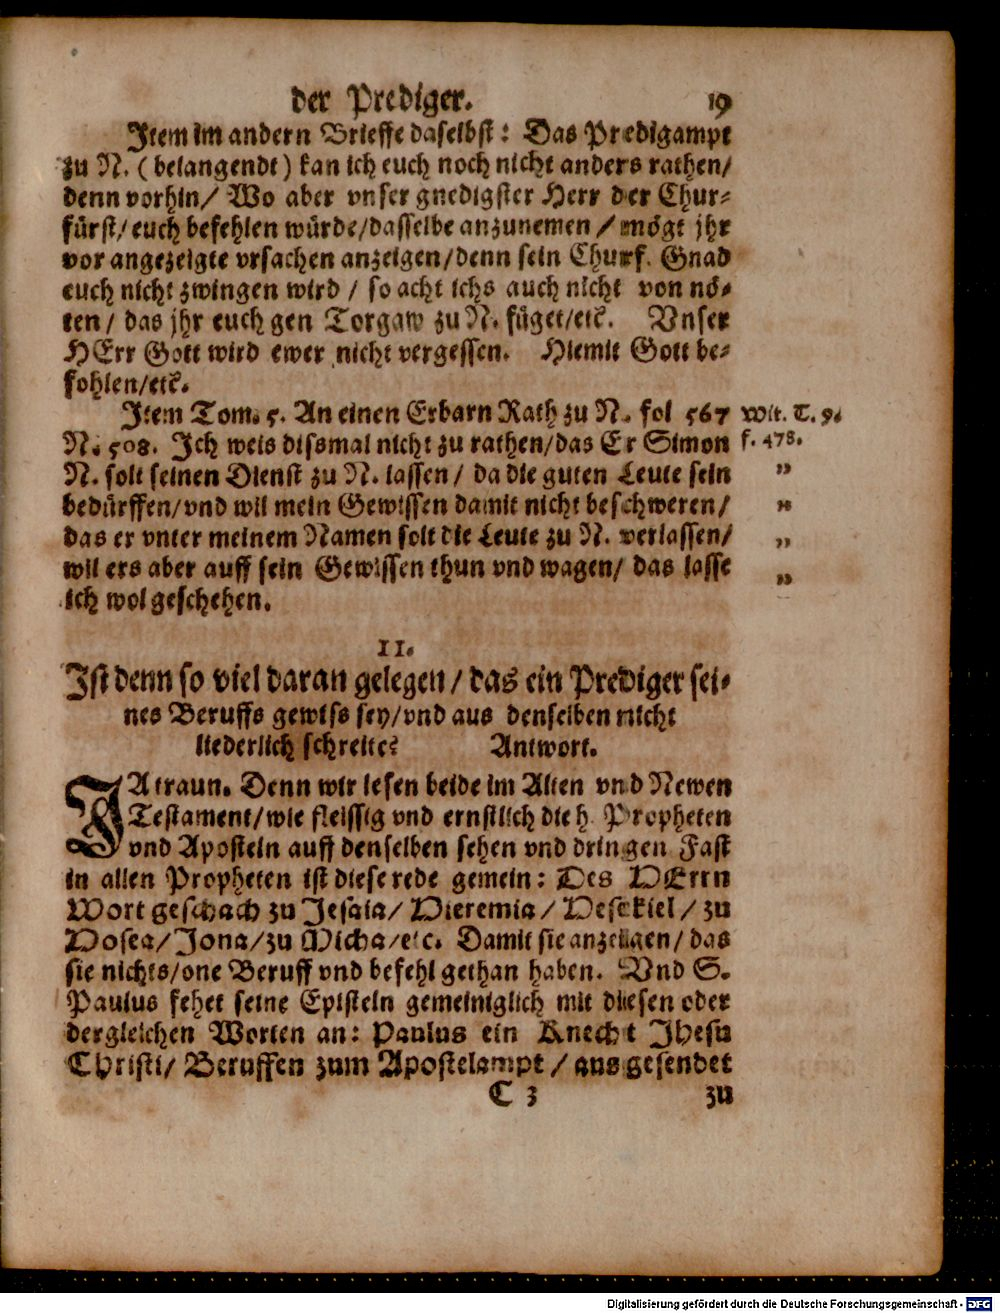 der Prediger. 19
Item im andern Brieffe daselbst: Das Predigampt
zu N. (belangendt) kan ich euch noch nicht anders rathen/
denn vorhin/ Wo aber vnser gnedigster Herr der Chur-
fürst/ euch befehlen würde/ dasselbe anzunemen / mögt jhr
vor angezeigte vrsachen anzeigen/ denn sein Churf. Gnad
euch nicht zwingen wird / so acht ichs auch nicht von nö-
ten / das jhr euch gen Torgaw zu N. füget/ etc. Vnser
HErr Gott wird ewer nicht vergessen. Hiemit Gott be-
fohlen/ etc.
Item Tom. 5. An einen Erbarn Rath zu N. fol 567 Wit. T. 9.
N. 508. Ich weis dissmal nicht zu rathen/ das Er Simon f. 478.
N. solt seinen Dienst zu N. lassen / da die guten Leute sein "
bedürffen/ vnd wil mein Gewissen damit nicht beschweren/ "
das er vnter meinem Namen solt die Leute zu N. verlassen/ "
wil ers aber auff sein Gewissen thun vnd wagen/ das lasse "
ich wol geschehen.
II.
Ist denn so viel daran gelegen / das ein Prediger sei-
nes Beruffs gewiss sey/ vnd aus denselben nicht
liederlich schreite? Antwort.
JA traun. Denn wir lesen beide im Alten vnd Newen
Testament/ wie fleissig vnd ernstlich die h. Propheten
vnd Aposteln auff denselben sehen vnd dringen Fast
in allen Propheten ist diese rede gemein: Des HErrn
Wort geschach zu Jesaia/ Hieremia / Hesekiel / zu
Hosea/ Jona/ zu Micha/ etc. Damit sie anzeigen/ das
sie nichts/ one Beruff vnd befehl gethan haben. Vnd S.
Paulus fehet seine Episteln gemeiniglich mit diesen oder
dergleichen Worten an: Paulus ein Knecht Jhesu
Christi/ Beruffen zum Apostelampt / ausgesendet
C 3 zu
Digitalisierung gefördert durch die Deutsche Forschungsgemeinschaft - DFG